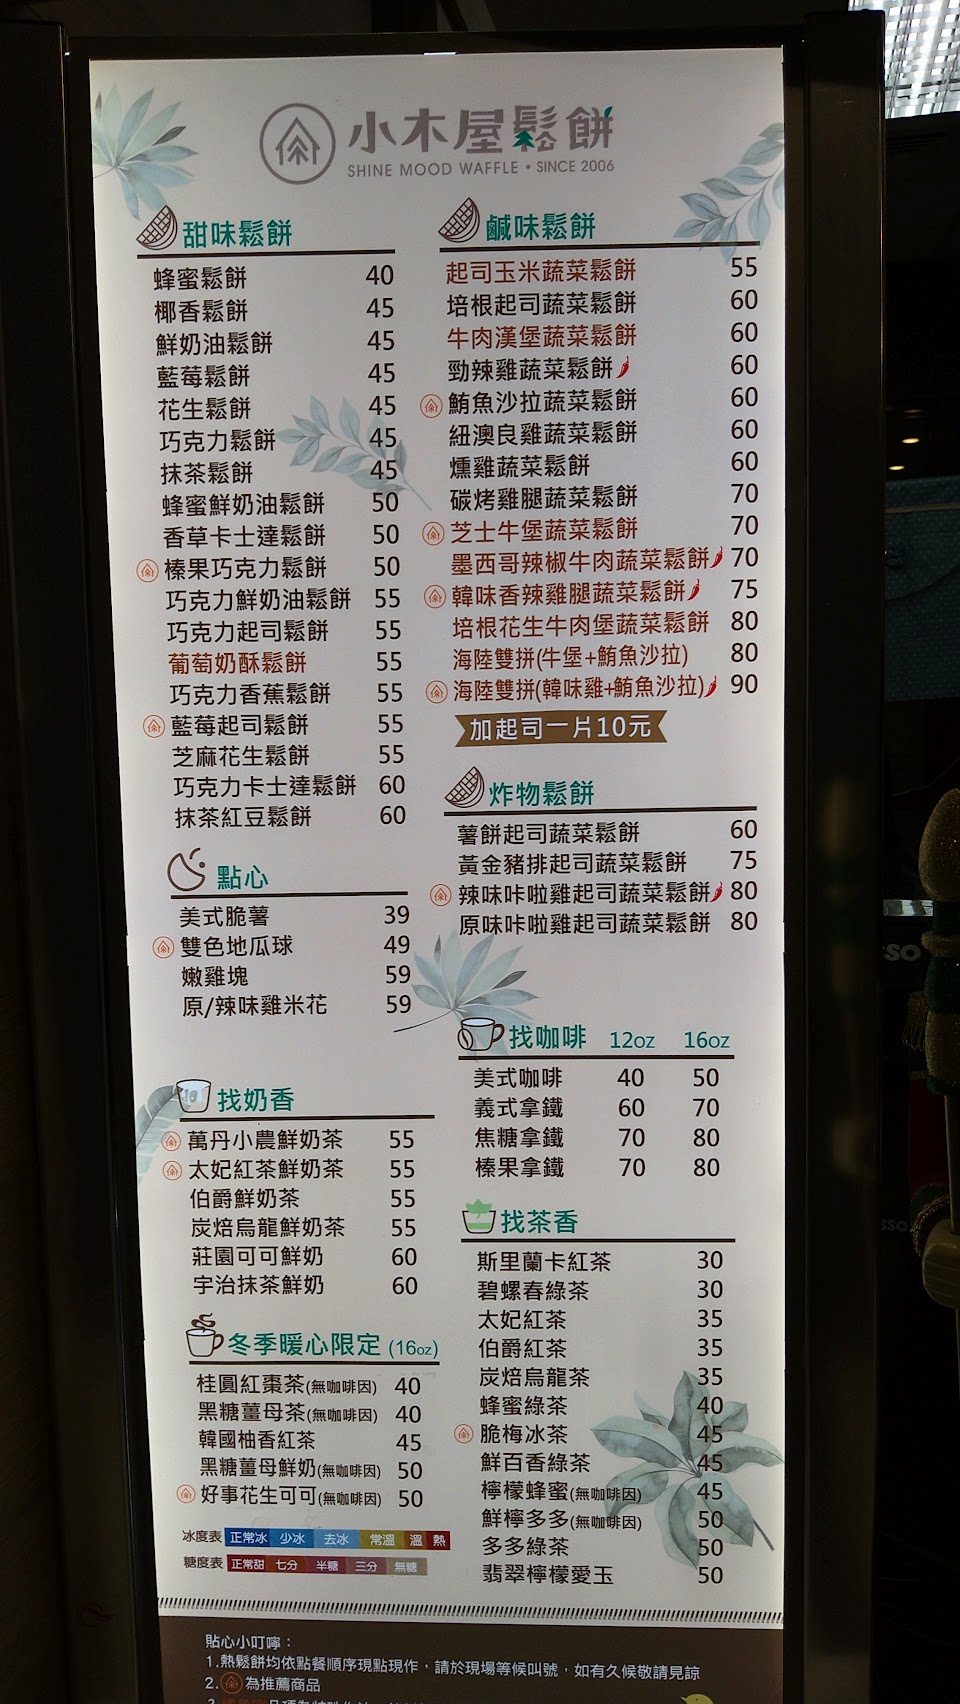 小木屋鬆餅
SHINE MOOD WAFFLE • SINCE 2006
甜味鬆餅
蜂蜜鬆餅 40
椰香鬆餅 45
鮮奶油鬆餅 45
藍莓鬆餅 45
花生鬆餅 45
巧克力鬆餅 45
抹茶鬆餅 45
蜂蜜鮮奶油鬆餅 50
香草卡士達鬆餅 50
榛果巧克力鬆餅 50
巧克力鮮奶油鬆餅 55
巧克力起司鬆餅 55
葡萄奶酥鬆餅 55
巧克力香蕉鬆餅 55
藍莓起司鬆餅 55
芝麻花生鬆餅 55
巧克力卡士達鬆餅 60
抹茶紅豆鬆餅 60
點心
美式脆薯 39
雙色地瓜球 49
嫩雞塊 59
原/辣味雞米花 59
找奶香
萬丹小農鮮奶茶 55
太妃紅茶鮮奶茶 55
伯爵鮮奶茶 55
炭焙烏龍鮮奶茶 55
莊園可可鮮奶 60
宇治抹茶鮮奶 60
冬季暖心限定 (16oz)
桂圓紅棗茶(無咖啡因) 40
黑糖薑母茶(無咖啡因) 40
韓國柚香紅茶 45
黑糖薑母鮮奶(無咖啡因) 50
好事花生可可(無咖啡因) 50
冰度表 正常冰 少冰 去冰 常溫 溫 熱
糖度表 正常甜 七分 半糖 三分 無糖
鹹味鬆餅
起司玉米蔬菜鬆餅 55
培根起司蔬菜鬆餅 60
牛肉漢堡蔬菜鬆餅 60
勁辣雞蔬菜鬆餅 60
鮪魚沙拉蔬菜鬆餅 60
紐澳良雞蔬菜鬆餅 60
燻雞蔬菜鬆餅 60
碳烤雞腿蔬菜鬆餅 70
芝士牛堡蔬菜鬆餅 70
墨西哥辣椒牛肉蔬菜鬆餅 70
韓味香辣雞腿蔬菜鬆餅 75
培根花生牛肉堡蔬菜鬆餅 80
海陸雙拼(牛堡+鮪魚沙拉) 80
海陸雙拼(韓味雞+鮪魚沙拉) 90
加起司一片10元
炸物鬆餅
薯餅起司蔬菜鬆餅 60
黃金豬排起司蔬菜鬆餅 75
辣味咔啦雞起司蔬菜鬆餅 80
原味咔啦雞起司蔬菜鬆餅 80
找咖啡 12oz 16oz
美式咖啡 40 50
義式拿鐵 60 70
焦糖拿鐵 70 80
榛果拿鐵 70 80
找茶香
斯里蘭卡紅茶 30
碧螺春綠茶 30
太妃紅茶 35
伯爵紅茶 35
炭焙烏龍茶 35
蜂蜜綠茶 40
脆梅冰茶 45
鮮百香綠茶 45
檸檬蜂蜜(無咖啡因) 45
鮮檸多多(無咖啡因) 50
多多綠茶 50
翡翠檸檬愛玉 50
貼心小叮嚀：
1.熱鬆餅均依點餐順序現點現作，請於現場等候叫號，如有久候敬請見諒
2. 為推薦商品